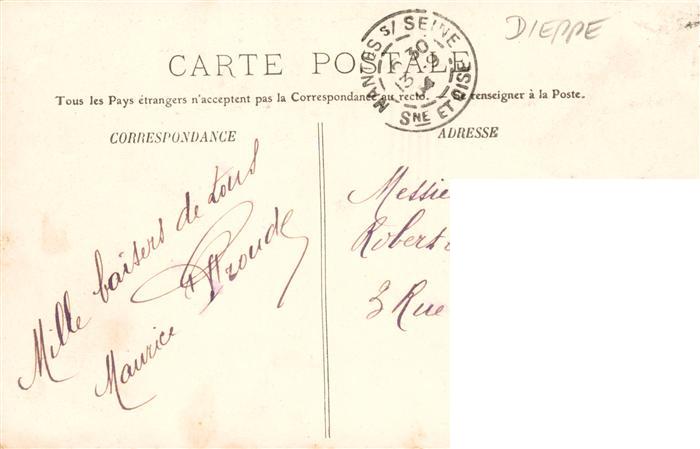 DIEPPE
CARTE POSTALE
MANTES S/ SEINE
SNE ET OISE
Tous les Pays étrangers n'acceptent pas la Correspondance au recto. Se renseigner à la Poste.
CORRESPONDANCE
ADRESSE
Mille baisers de tous
Maurice
Messie
Robert
3 Rue